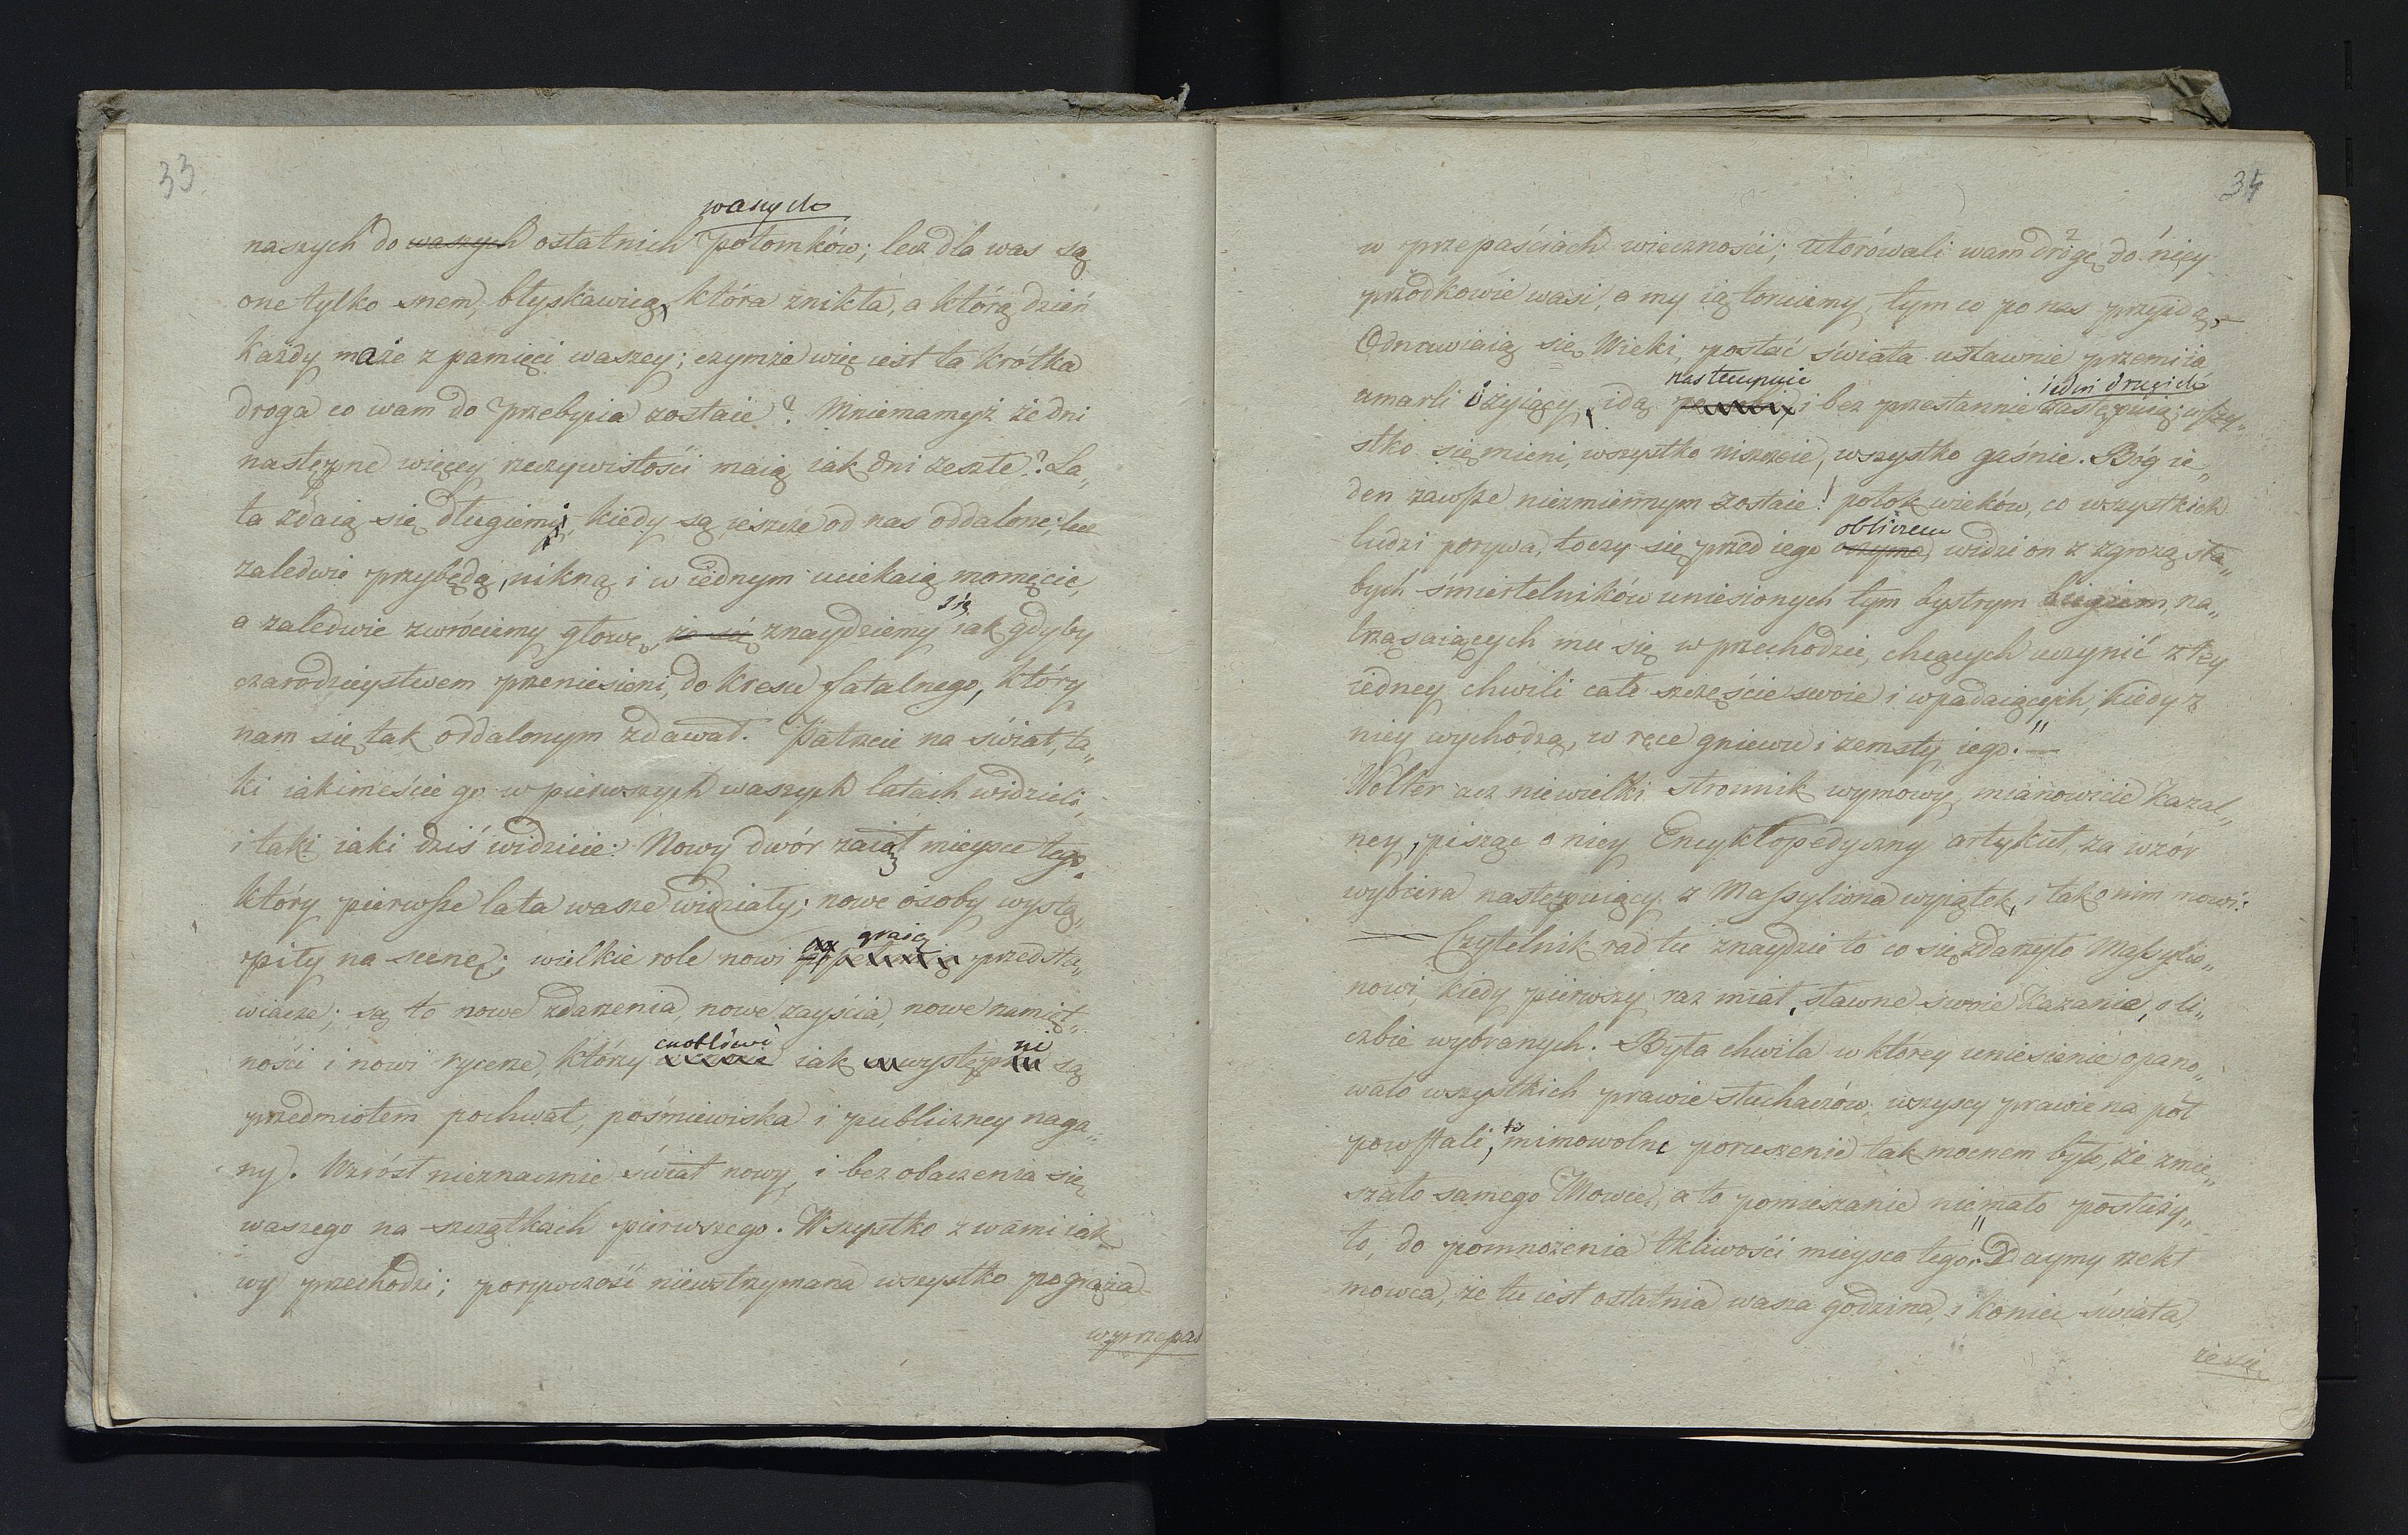 33
waszych
naszych do waszych ostatnich potomków; lecz dla was są
one tylko snem, błyskawicą, która znikła, a którą dzień
każdy maże z pamięci waszey; czymże więc iest ta krótka
droga co wam do przebycia zostaie? Mniemamyż że dni
następne więcey rzeczywistości maią iak dni zeszłe? La„
ta zdaią się długiemi, kiedy są ieszcze od nas oddalone; lecz
zaledwie przybędą, nikną i w iednym uciekaią momęcie,
się
a zaledwie zwróciemy głowę, że się znaydziemy iak gdyby
czarodzieystwem przeniesieni, do kresu fatalnego, który
nam się tak oddalonym zdawał. Patrzcie na świat, ta„
ki iakimeście go w pierwszych waszych latach widzieli,
i taki iaki dziś widzicie: Nowy dwór zaiął mieysce tego,
który pierwsze lata wasze widziały; nowe osoby wystą„
graią
piły na scenę; wielkie role nowi przedsta„
wiacze; są to nowe zdarzenia, nowe zayścia, nowe namięt„
cnotliwi ni
ności i nowi rycerze, którzy iak występni są
przedmiotem pochwał, pośmiewiska i publiczney naga„
ny. Wzrósł nieznacznie świat nowy, i bez obaczenia się
waszego na szczątkach pierwszego. Wszystko z wami iak
wy przechodzi; porywczość niewstrzymana wszystko pogrąża
w przepaś
34
w przepaściach wieczności; utorówali wam drogę do niey
przodkowie wasi, a my ią toruiemy, tym co po nas przyidą,
Odnawiaią się Wieki, postać świata ustawnie przemiia
następuie iedni drugich
umarli i żyiący, idą i bez przestannie zastępuią; wszy„
stko się mieni, wszystko niszczeie, wszystko gaśnie. Bóg ie„
den zawsze niezmiennym zostaie! potok wieków, co wszystkich
obliczem
ludzi porywa, toczy się przed iego oczyma, widzi on z zgrozą sła„
bych śmiertelników uniesionych tym bystrym biegiem, na„
trząsaiących mu się w przechodzie, chcących uczynić z tey
iedney chwili całe szczęście swoie i wpadaiących, kiedy z
niey wychodzą, w ręce gniewu i zemsty iego."
Wolter acz niewielki stronnik wymowy, mianowicie kazal„
ney, pisząc o niey Encyklopedyczny artykuł, za wzór
wybiera następuiący z Massyliona wyiątek, i tak o nim mowi:
Czytelnik rad tu znaydzie to co się zdarzyło Massylio„
nowi, kiedy pierwszy raz miał, sławne swoie Kazanie, o li„
czbie wybranych. Była chwila w którey uniesienie opano„
wało wszystkich prawie słuchaczów; wszyscy prawie na pół
to
powstali, mimowolne poruszenie tak mocnem było, że zmie„
szało samego Mowcę, a to pomieszanie niemało posłuży„
ło, do pomnożenia tkliwości mieysca tego: "Daymy rzekł
mowca, że tu iest ostatnia wasza godzina, i koniec świata,
że się